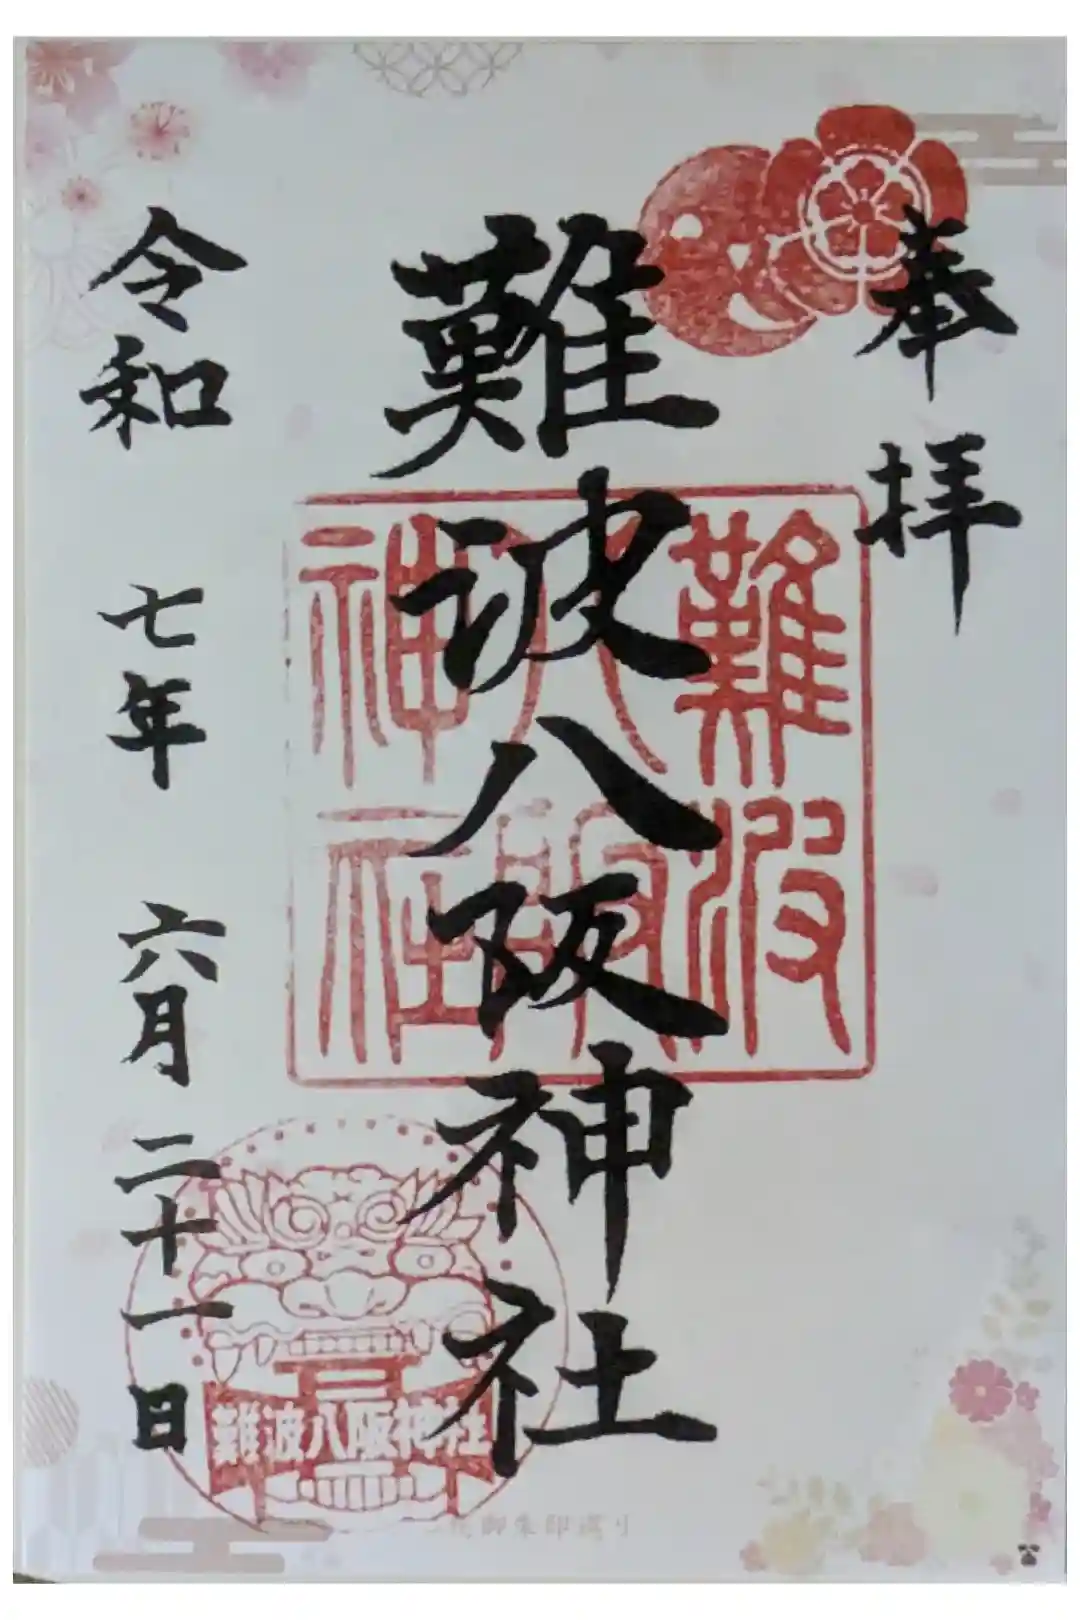 奉拝
難波八阪神社
令和 七年 六月 二十一日
難波
八阪
神社
難波八阪神社
御朱印巡り